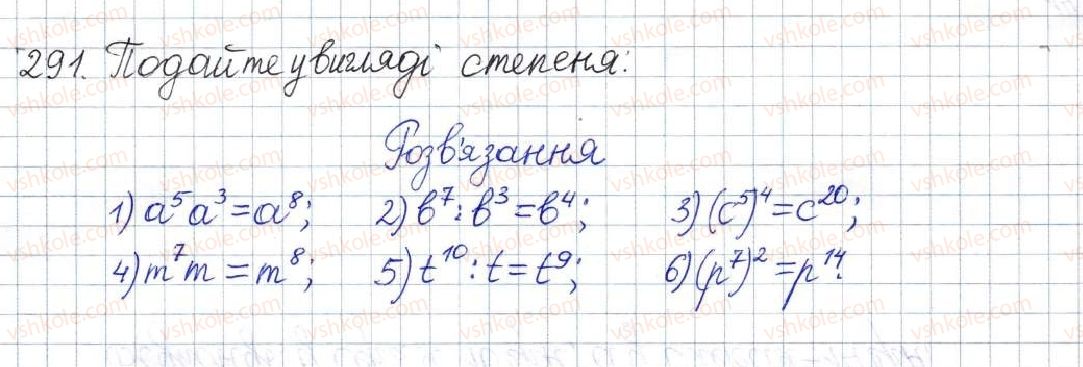 291. Подайте у вигляді степеня:
Розв'язання
1) a⁵a³=a⁸; 2) b⁷:b³=b⁴; 3) (c⁵)⁴=c²⁰;
4) m⁷m=m⁸; 5) t¹⁰:t=t⁹; 6) (p⁷)²=p¹⁴.